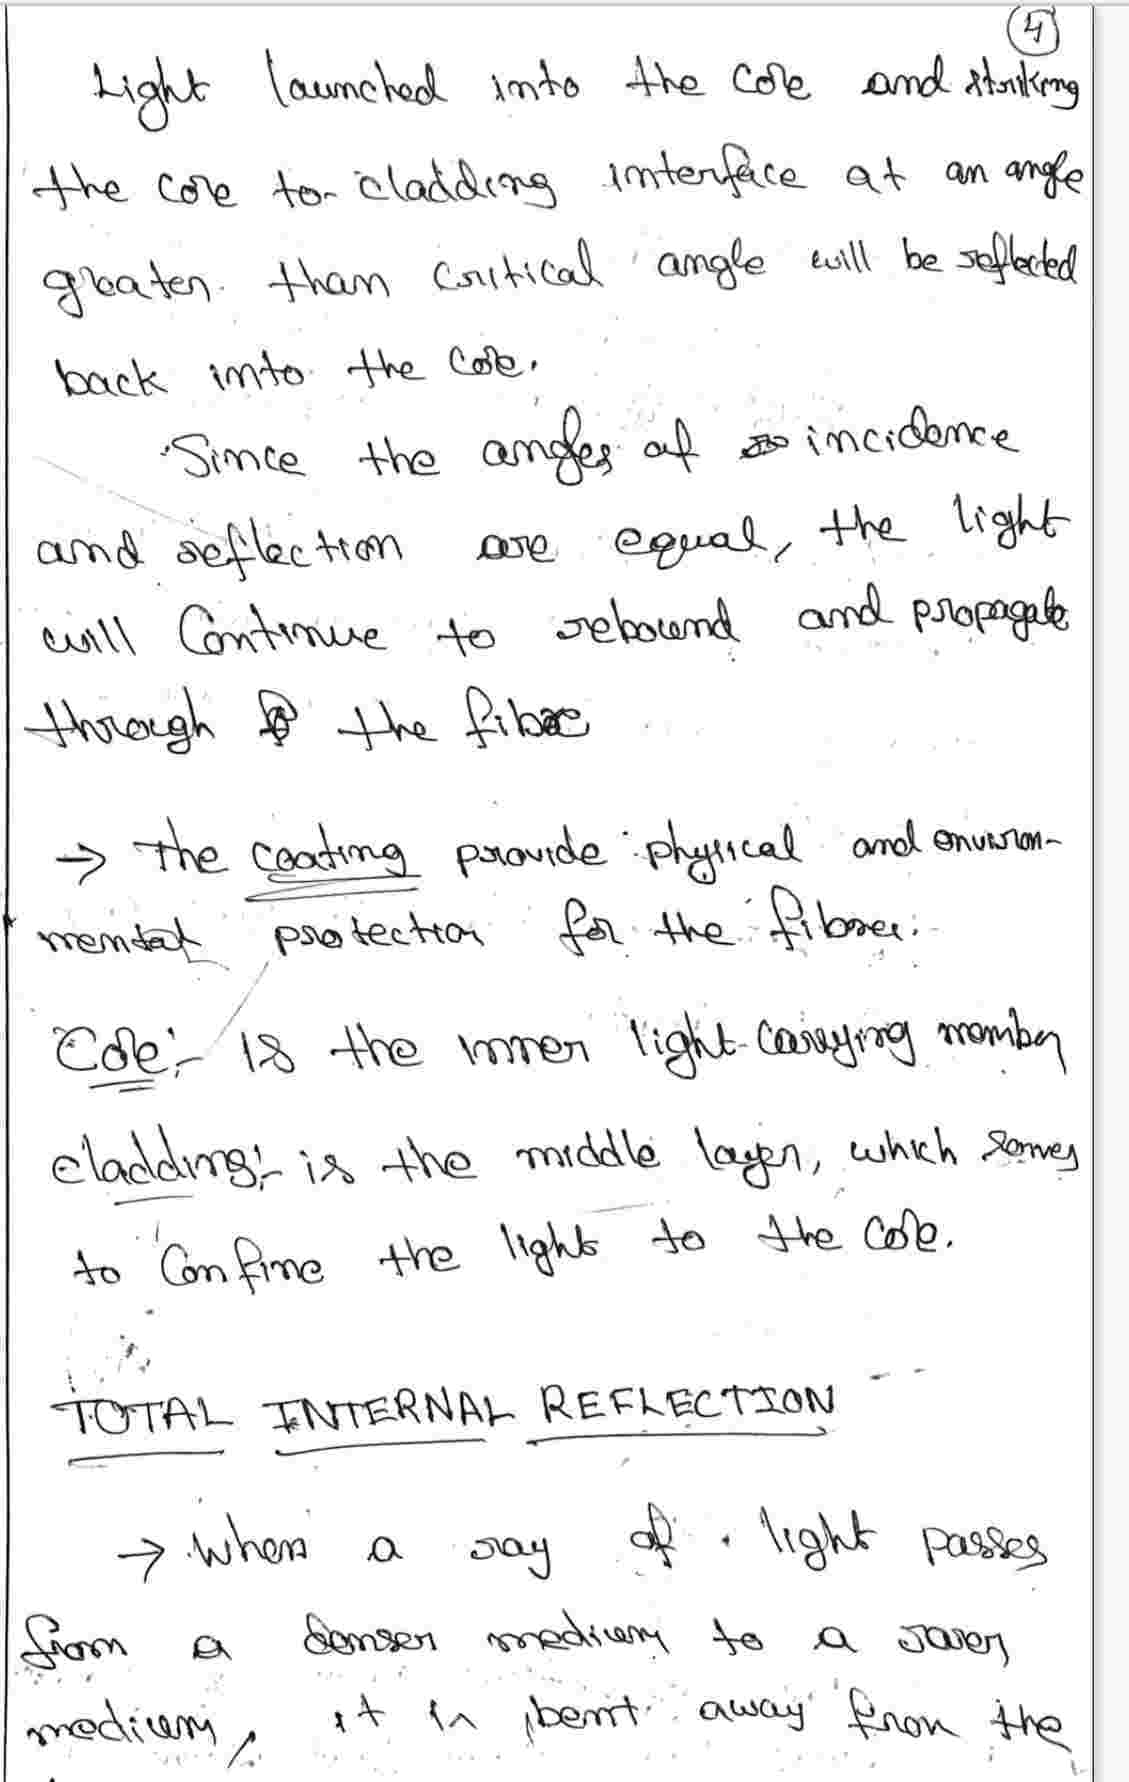 4
Light launched into the core and striking
the core to-cladding interface at an angle
greater than critical angle will be reflected
back into the core.
Since the angles of incidence
and reflection are equal, the light
will Continue to rebound and propagate
through the fibre
→ The coating provide physical and environ-
mental protection for the fibre.
Core:- Is the inner light-carrying member
cladding:- is the middle layer, which serves
to Confine the light to the core.
TOTAL INTERNAL REFLECTION
→ When a ray of light passes
from a denser medium to a rarer
medium, it is bent away from the